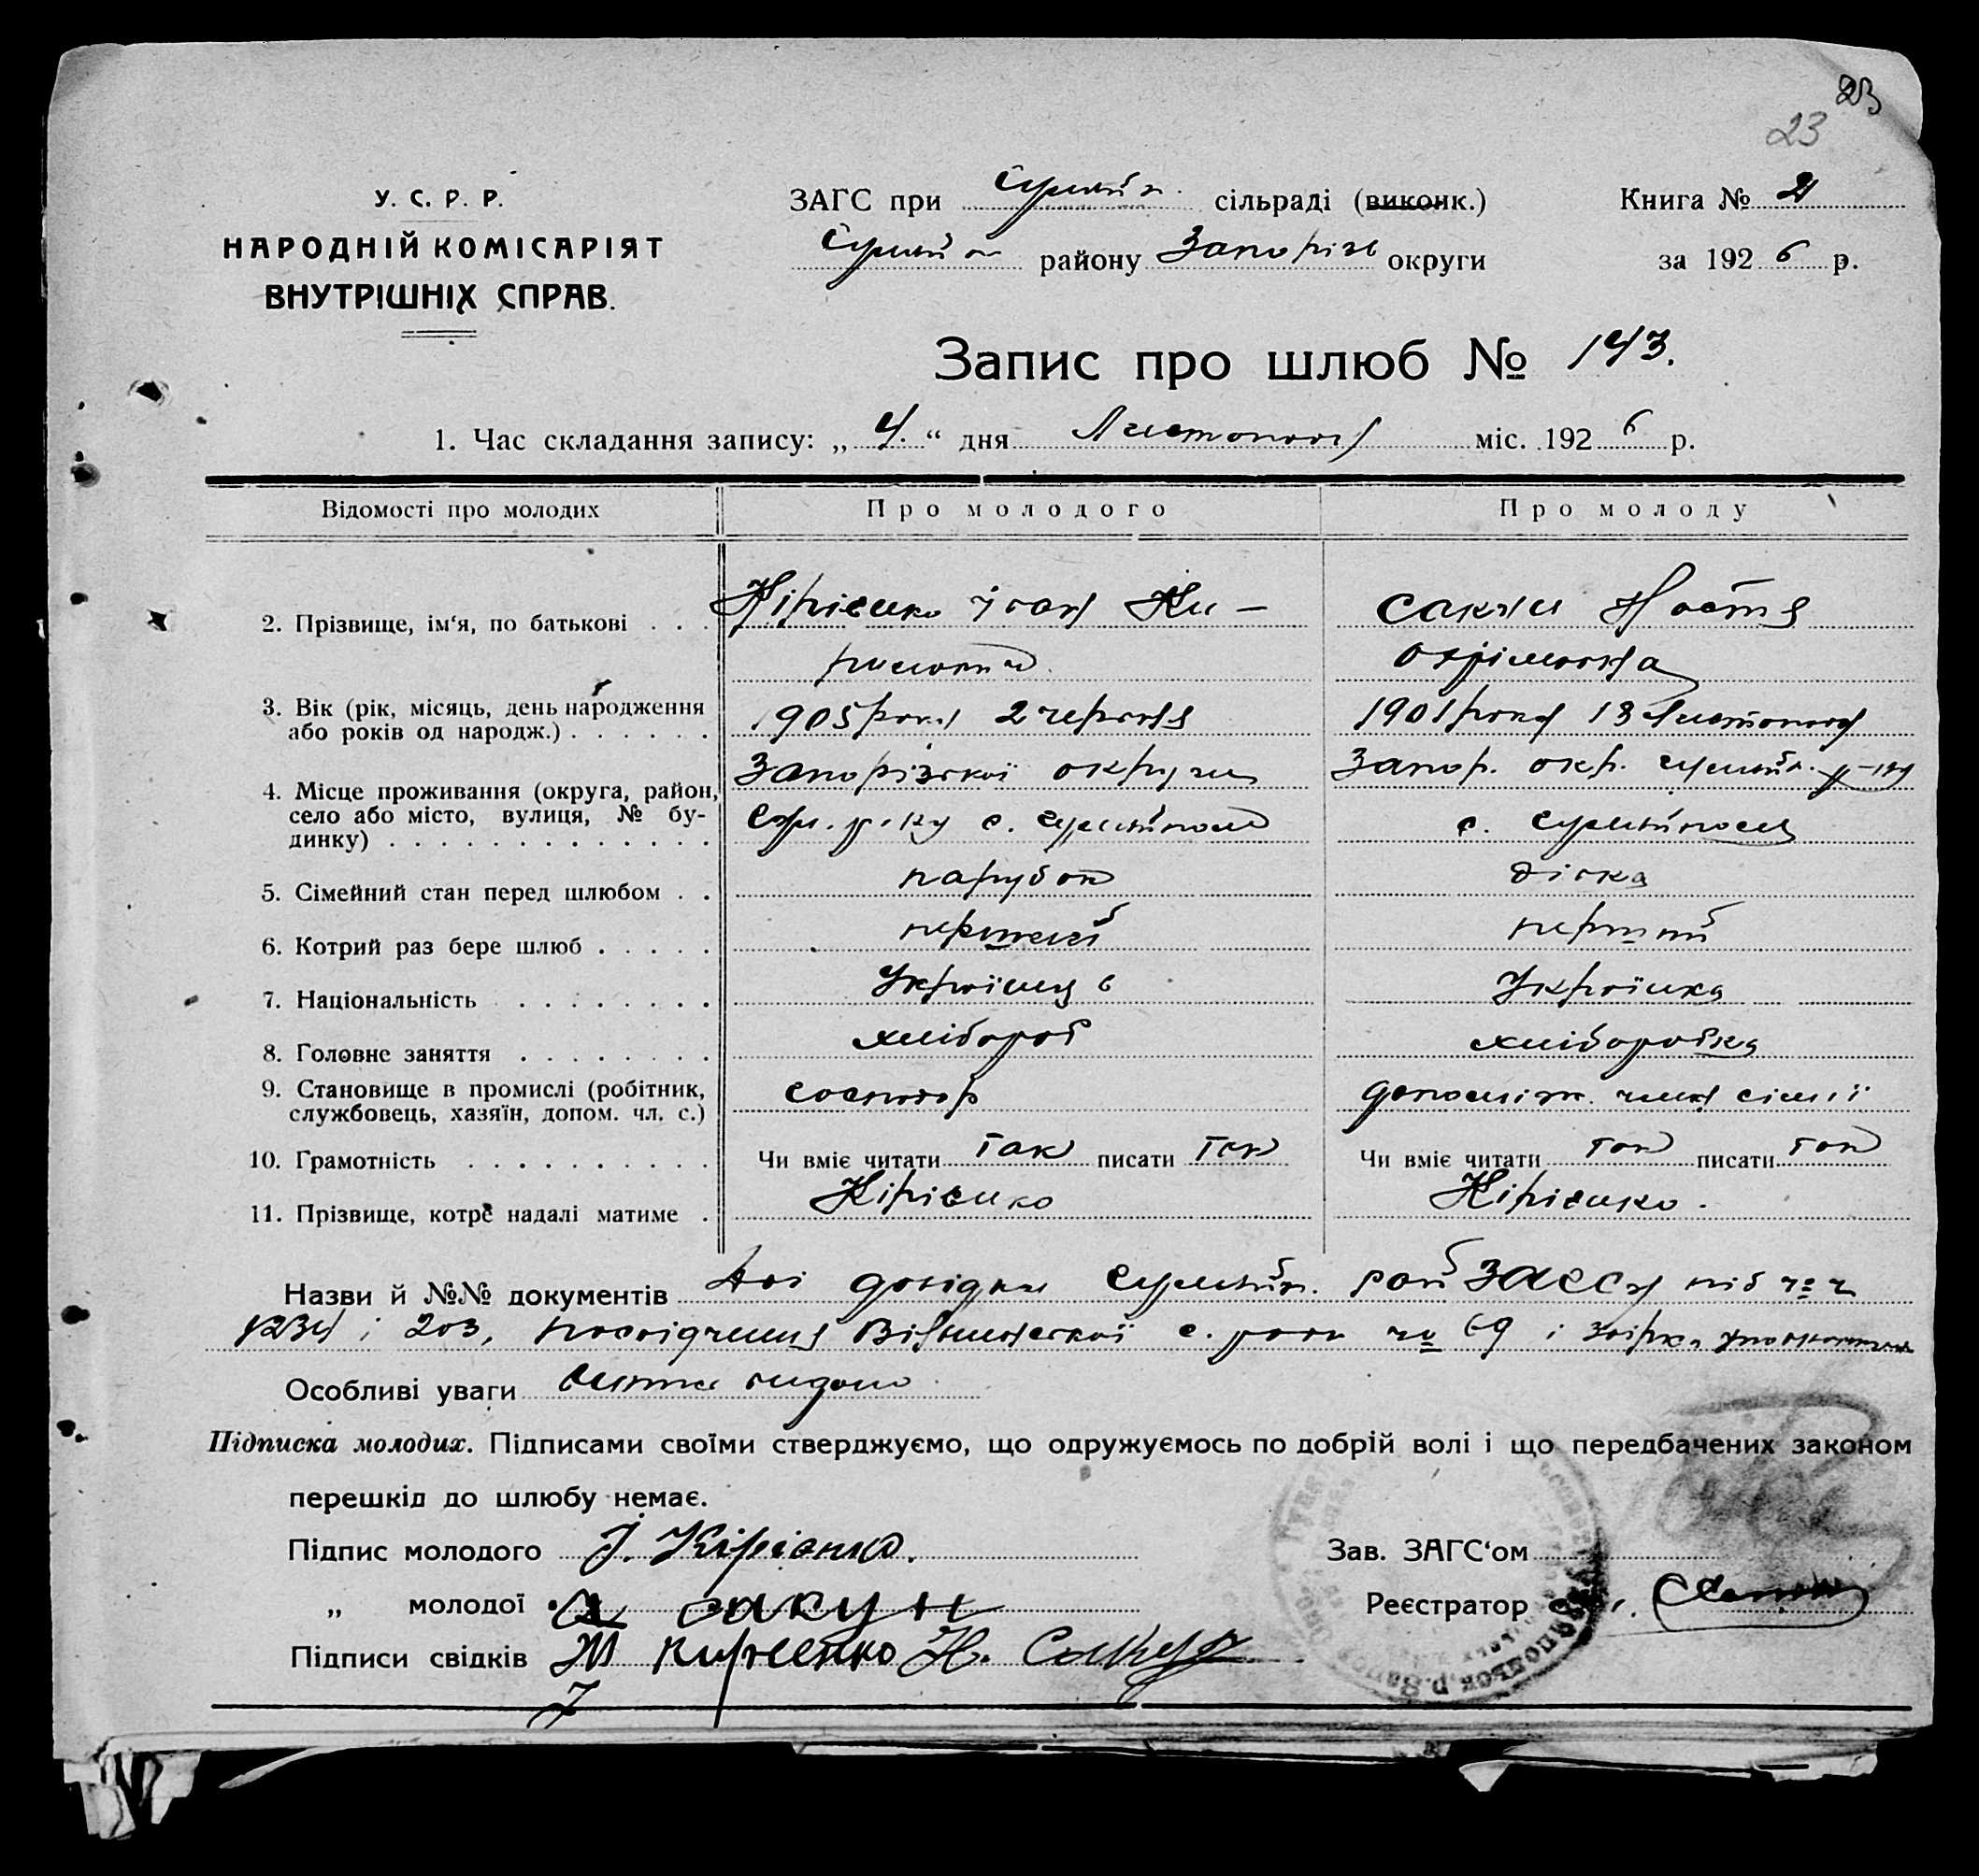 23
23
У. С. Р. Р.
НАРОДНІЙ КОМІСАРІЯТ
ВНУТРІШНІХ СПРАВ.
ЗАГС при сільраді (виконк.)
району Запорізь округи
Книга № 2
за 1926 р.
Запис про шлюб № 143.
1. Час складання запису: „ 4. “ дня Листопада міс. 1926 р.
Відомості про молодих Про молодого Про молоду
2. Прізвище, ім‘я, по батькові . . . Кірієнко Іван Ки- Сакун Настя
рилович Охрімовна
3. Вік (рік, місяць, день народження 1905 року 2 червня 1901 року 13 Листопада
або років од народж.) . . . . . .
4. Місце проживання (округа, район, Запорізкої округи Запор. окр.
село або місто, вулиця, № бу- с. с.
динку) . . . . . . . . . . . . .
5. Сімейний стан перед шлюбом . . парубок дівка
6. Котрий раз бере шлюб . . . . . перший перший
7. Національність . . . . . . . . Українець Українка
8. Головне заняття . . . . . . . . хлібороб хліборобка
9. Становище в промислі (робітник, господар допоміж. член сімії
службовець, хазяїн, допом. чл. с.)
10. Грамотність . . . . . . . . . . Чи вміє читати так писати так Чи вміє читати так писати так
11. Прізвище, котре надалі матиме . Кірієнко Кірієнко.
Назви й №№ документів Дві довідки рай ЗАГСу під
і 203, посвідчення с. ради № 69 і
Особливі уваги видано
Підписка молодих. Підписами своїми стверджуємо, що одружуємось по добрій волі і що передбачених законом
перешкід до шлюбу немає.
Підпис молодого І. Кірієнко.
Зав. ЗАГС‘ом
„ молодої сакун
Реєстратор
Підписи свідків Кириенко Н. Сакун